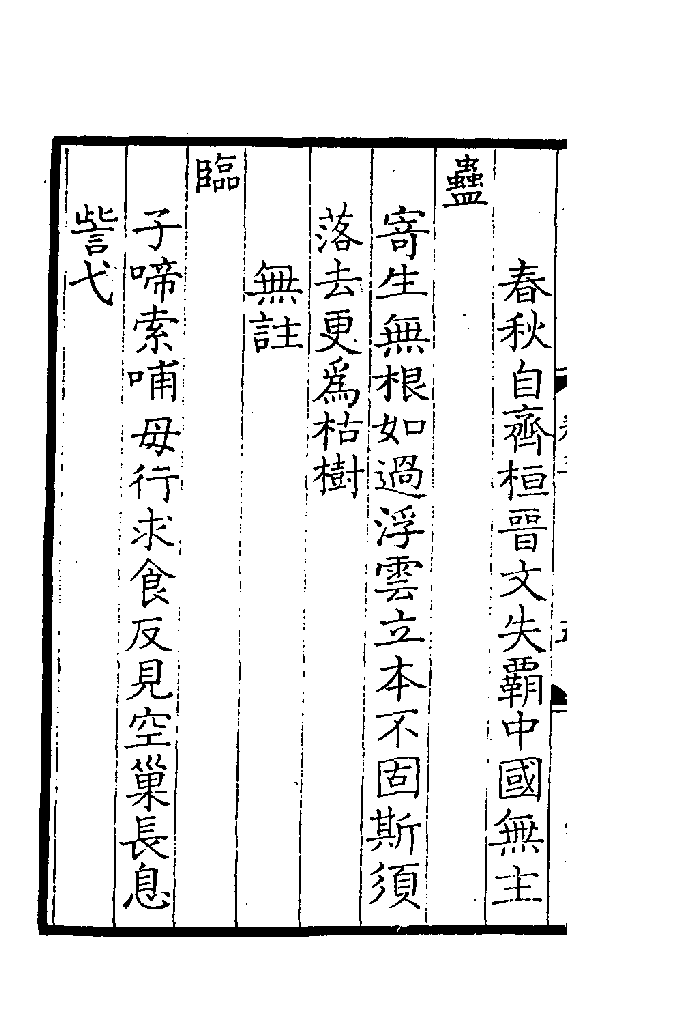 春秋自齊桓晉文失霸中國無主
蠱
寄生無根如過浮雲立本不固斯須
落去更爲枯樹
無註
臨
子啼索哺母行求食反見空巢長息
訾弋